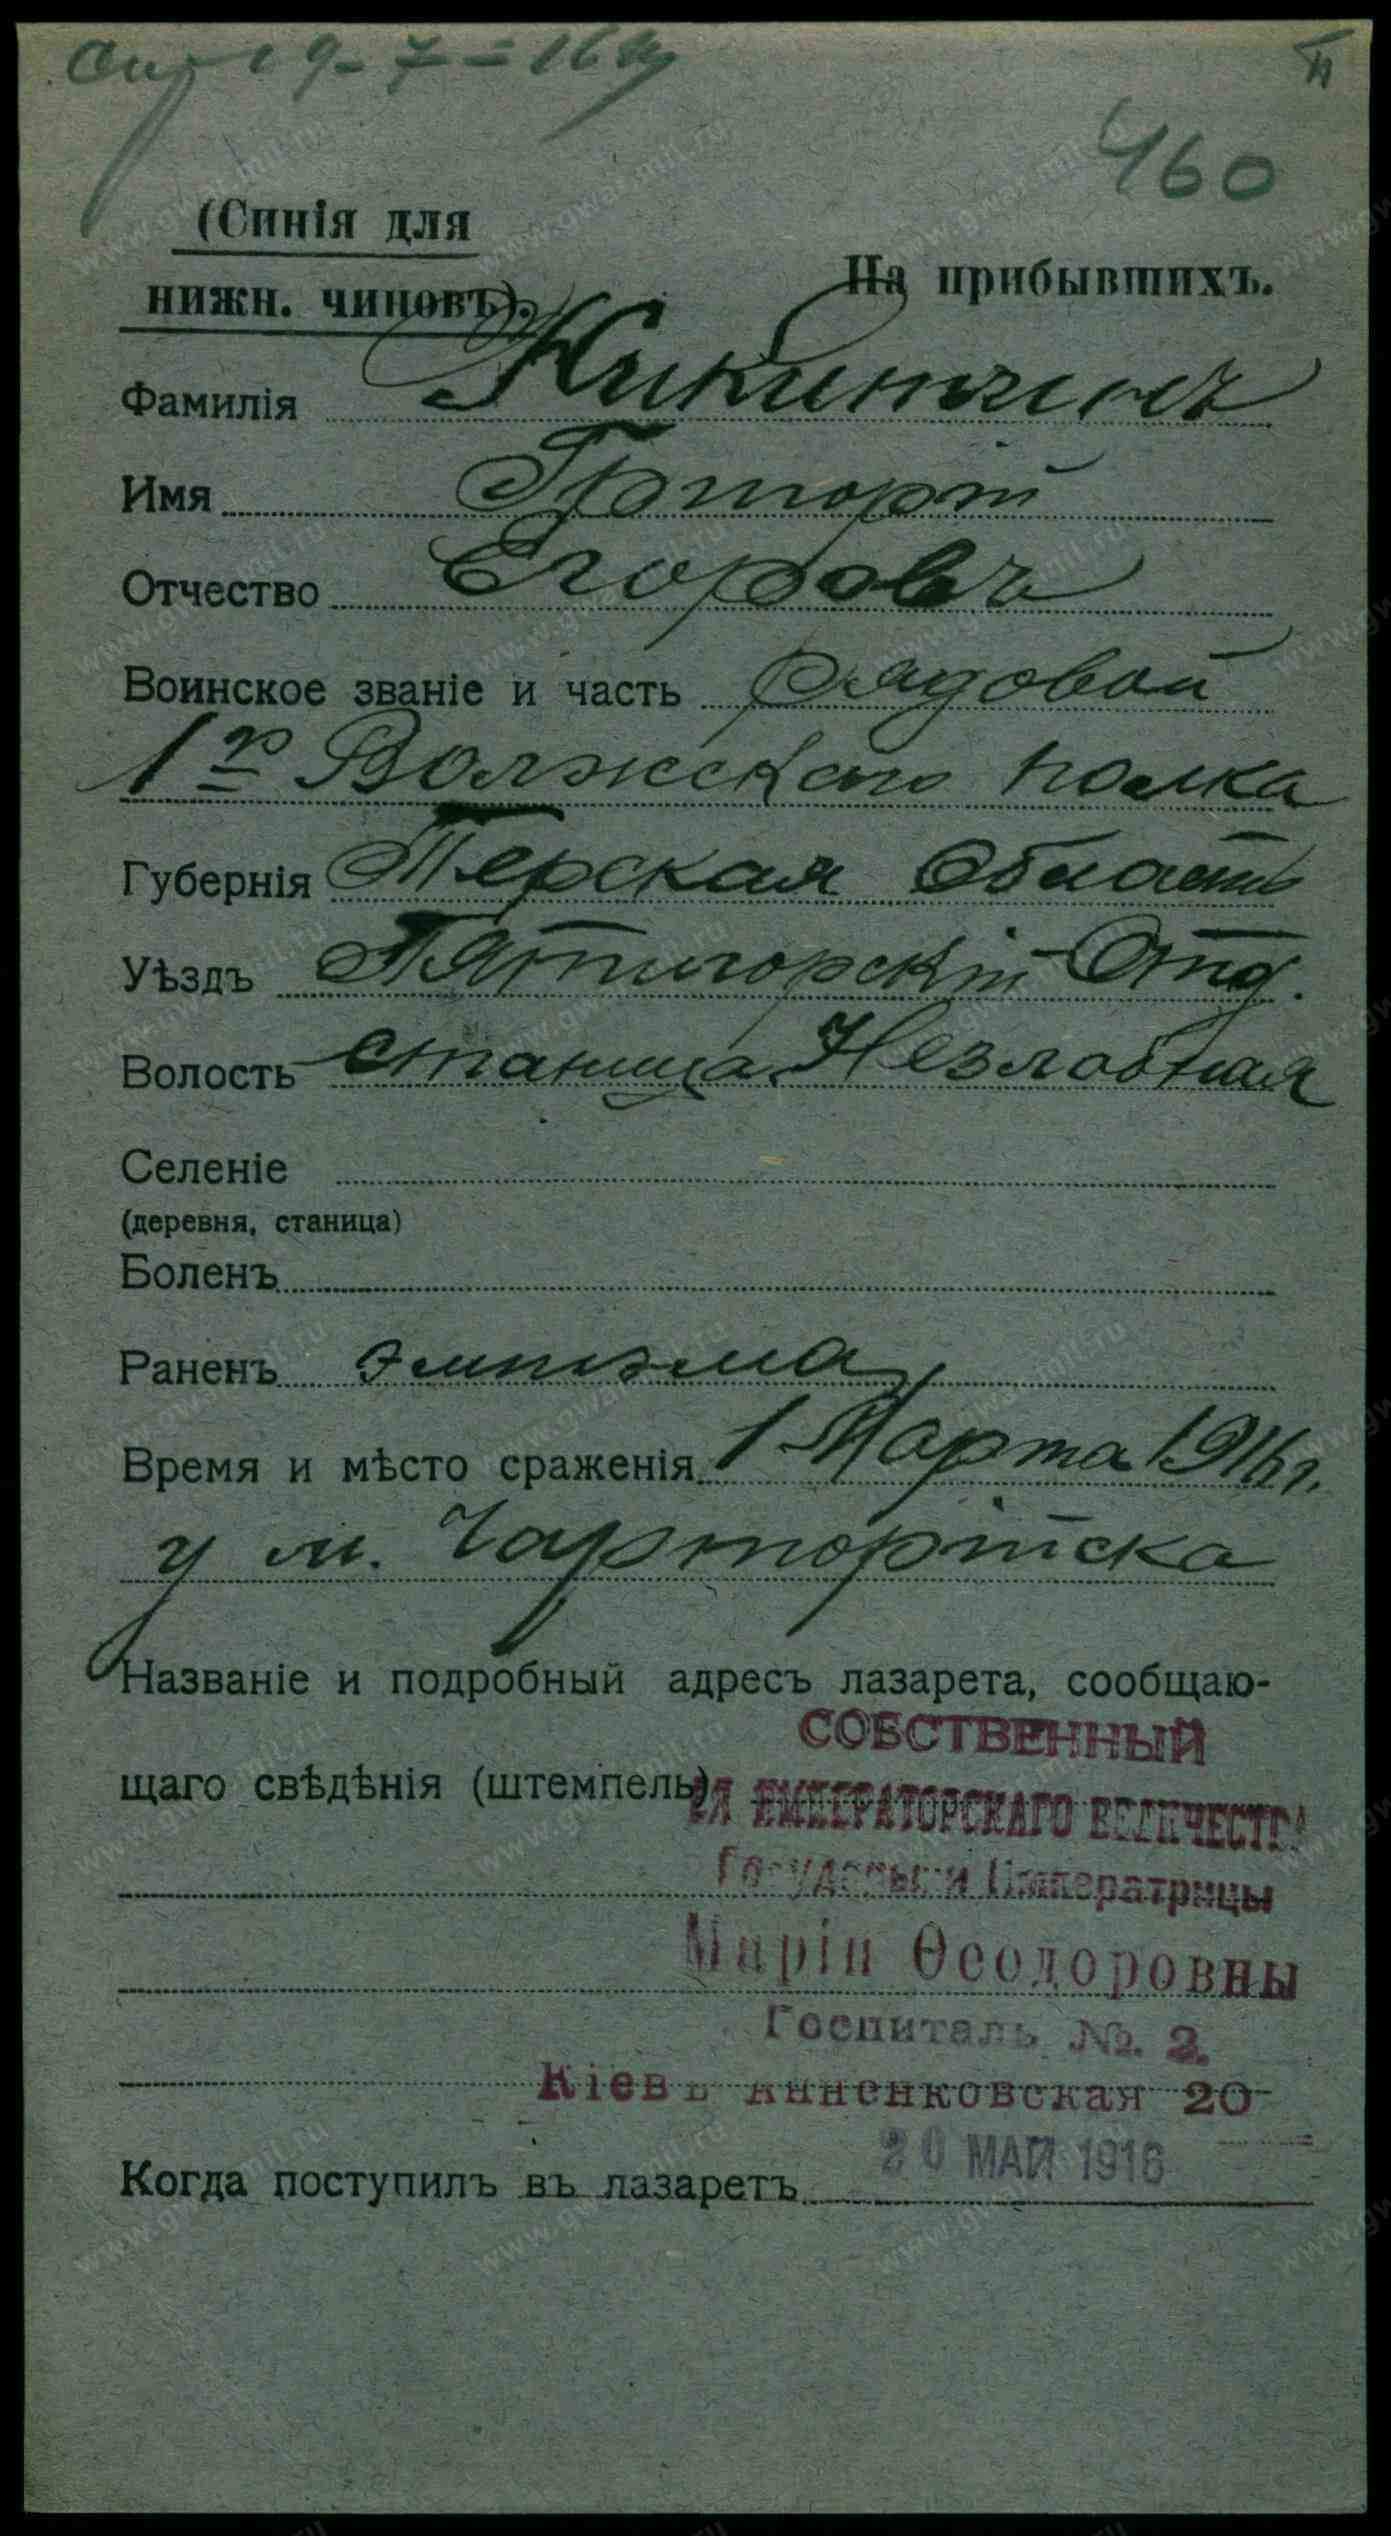 19-7-16
460
(Синія для
нижн. чиновъ).
На прибывшихъ.
Фамилія
Имя Григорій
Отчество Егоровъ
Воинское званіе и часть рядовой
1го Волжскаго полка
Губернія Терская область
Уѣздъ Пятигорскій Отд.
Волость станица Незлобная
Селеніе
(деревня, станица)
Боленъ
Раненъ эмпіэма
Время и мѣсто сраженія 1 Марта 1916 г.
у м. Чарторійска
Названіе и подробный адресъ лазарета, сообщаю-
СОБСТВЕННЫЙ
щаго свѣдѣнія (штемпель)
ЕЯ ИМПЕРАТОРСКАГО ВЕЛИЧЕСТВА
Государыни Императрицы
Маріи Ѳеодоровны
Госпиталь №. 2.
Кіевъ Анненковская 20
20 МАЙ 1916
Когда поступилъ въ лазаретъ
www.gwar.mil.ru